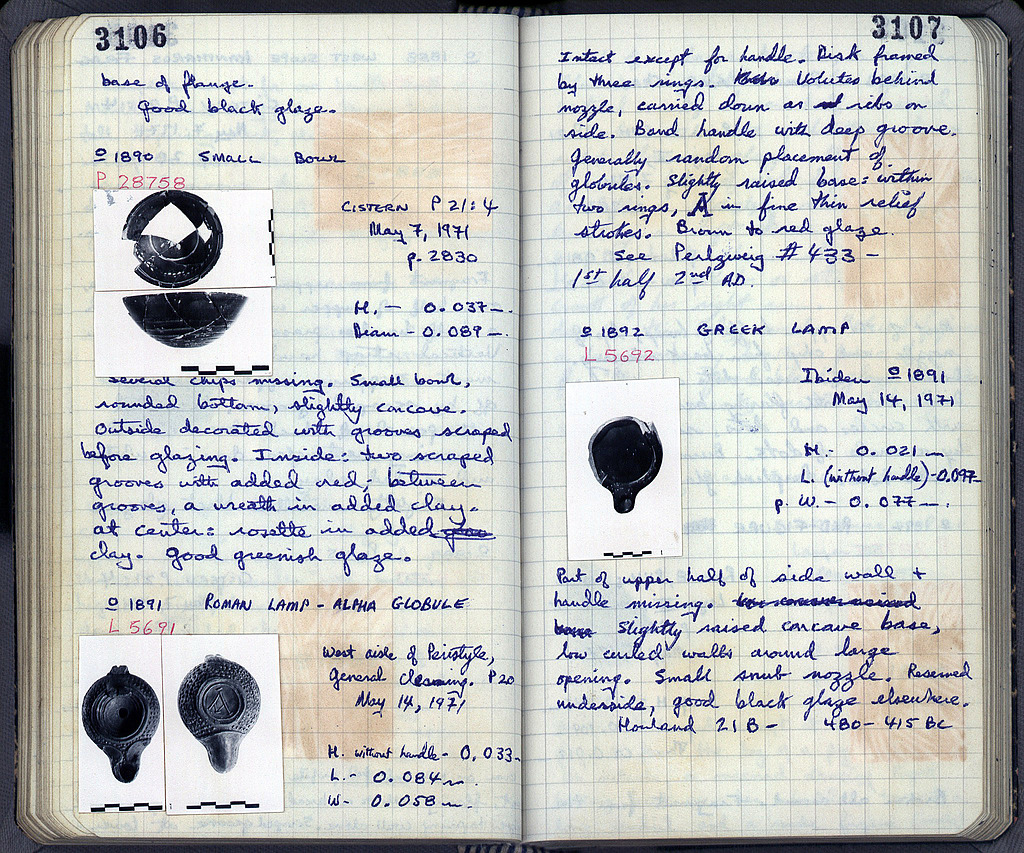 3106
base of flange.
Good black glaze.
º 1890 SMALL BOWL
P 28758
CISTERN P 21:4
May 7, 1971
p. 2830
H. – 0.037 –.
Diam – 0.089 –.
several chips missing. Small bowl,
rounded bottom, slightly concave.
Outside decorated with grooves scraped
before glazing. Inside: two scraped
grooves with added red; between
grooves, a wreath in added clay.
at center: rosette in added
clay. Good greenish glaze.
º 1891 ROMAN LAMP – ALPHA GLOBULE
L 5691
West aisle of Peristyle,
General cleaning. P20
May 14, 1971
H. without handle – 0.033 –
L. – 0.084 m.
W – 0.058 m.
3107
Intact except for handle. Disk framed
by three rings. Volutes behind
nozzle, carried down as ribs on
side. Band handle with deep groove.
Generally random placement of
globules. Slightly raised base: within
two rings, A in fine thin relief
strokes. Brown to red glaze.
See Perlzweig # 433 –
1st half 2nd AD.
º 1892 GREEK LAMP
L 5692
Ibidem º 1891
May 14, 1971
H. – 0.021 m
L. (without handle) – 0.097 –
p. W. – 0.077 –.
Part of upper half of side wall +
handle missing.
Slightly raised concave base,
low curled walls around large
opening. Small snub nozzle. Reserved
underside, good black glaze elsewhere.
Howland 21 B – 480 – 415 BC